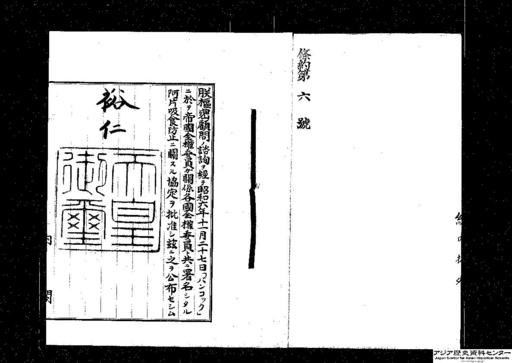 條約第六號
朕樞密顧問ノ諮詢ヲ經テ昭和六年十一月二十七日「バンコック」
ニ於テ帝國全權委員カ關係各國全權委員ト共ニ署名シタル
阿片吸食防止ニ關スル協定ヲ批准シ茲ニ之ヲ公布セシム
裕仁
天皇御璽
内閣
アジア歴史資料センター
Japan Center for Asian Historical Records